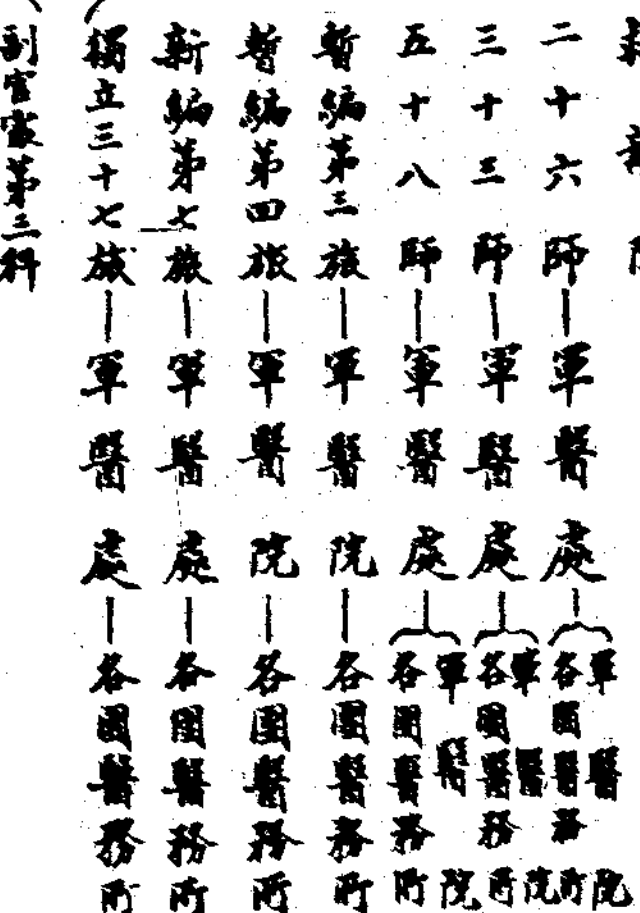 二十六師—軍醫處—軍醫院
各團醫務所
三十三師—軍醫處—軍醫院
各團醫務所
五十八師—軍醫處—軍醫院
各團醫務所
暫編第三旅—軍醫院—各團醫務所
暫編第四旅—軍醫院—各團醫務所
新編第七旅—軍醫處—各團醫務所
獨立三十七旅—軍醫處—各團醫務所
副官處第三科